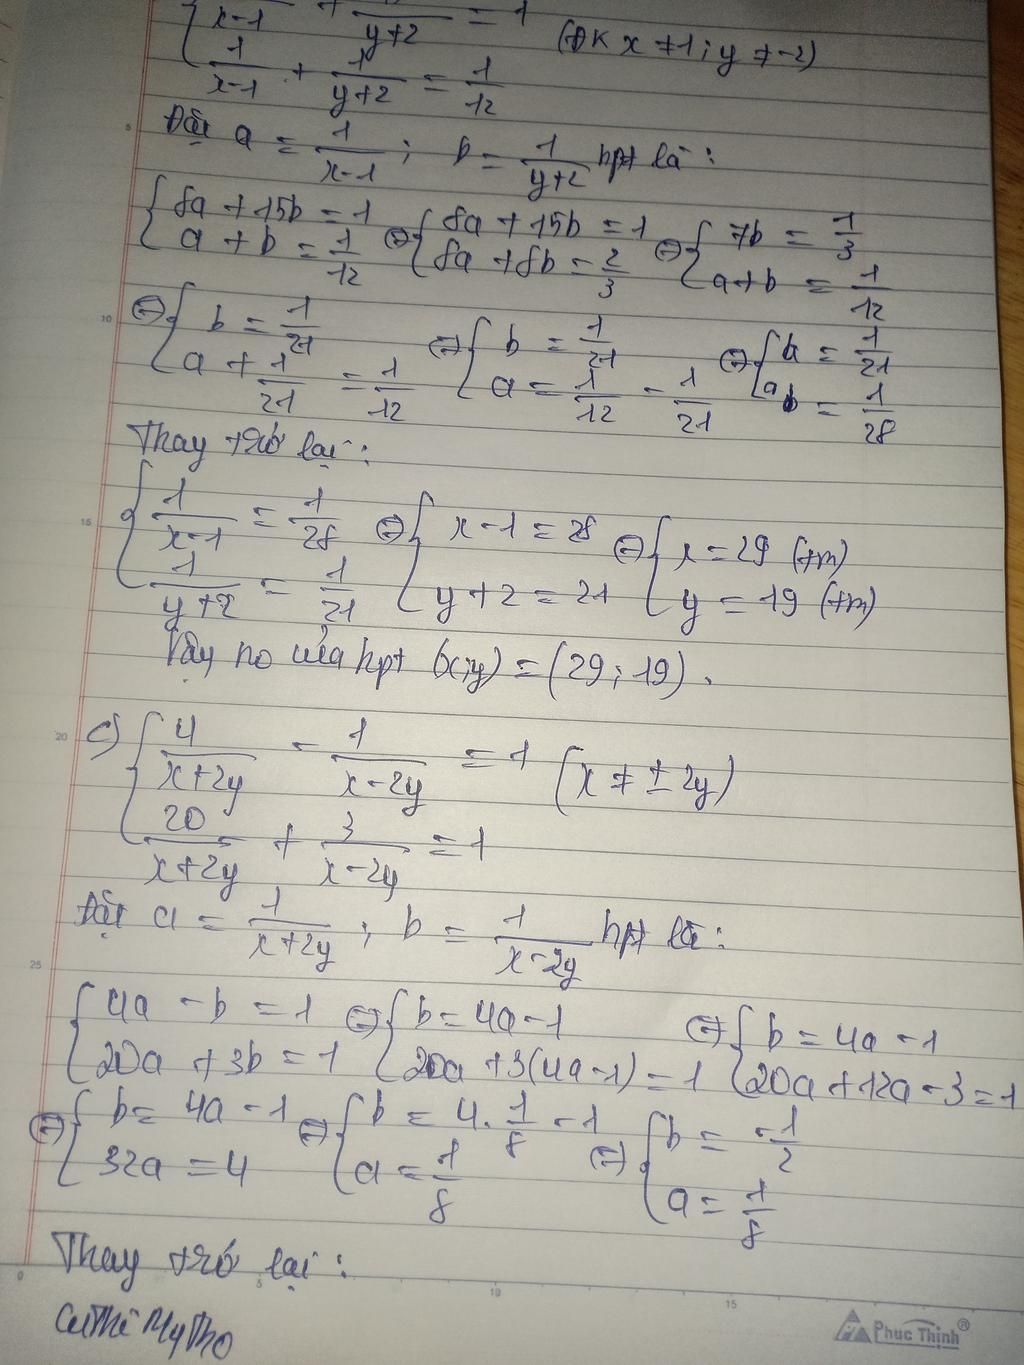 { x-1 + y+2 = 1 (ĐK x ≠ 1; y ≠ -2)
1/(x-1) + 1/(y+2) = 1/12
Đặt a = 1/(x-1) ; b = 1/(y+2) hpt là :
{ 8a + 15b = 1 ; a + b = 1/12 ⇔ { 8a + 15b = 1 ; 8a + 8b = 2/3 ⇔ { 7b = 1/3 ; a+b = 1/12
⇔ { b = 1/21 ; a + 1/21 = 1/12 ⇔ { b = 1/21 ; a = 1/12 - 1/21 ⇔ { b = 1/21 ; a = 1/28
Thay trở lại :
{ 1/(x-1) = 1/28 ; 1/(y+2) = 1/21 ⇔ { x-1 = 28 ; y+2 = 21 ⇔ { x = 29 (tm) ; y = 19 (tm)
Vậy no của hpt (x;y) = (29; 19).
c) { 4/(x+2y) - 1/(x-2y) = 1 (x ≠ ± 2y)
20/(x+2y) + 3/(x-2y) = 1
Đặt a = 1/(x+2y) ; b = 1/(x-2y) hpt là :
{ 4a - b = 1 ; 20a + 3b = 1 ⇔ { b = 4a-1 ; 20a + 3(4a-1) = 1 ⇔ { b = 4a-1 ; 20a + 12a - 3 = 1
⇔ { b = 4a - 1 ; 32a = 4 ⇔ { b = 4. 1/8 - 1 ; a = 1/8 ⇔ { b = -1/2 ; a = 1/8
Thay trở lại :
Phuc Thinh®
5
10
15
20
25
0 5 10 15